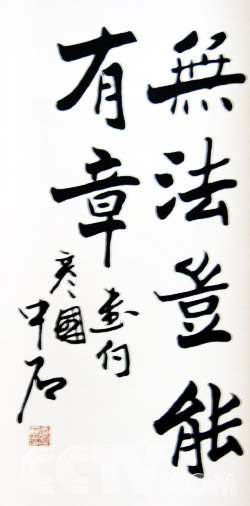 無法豈能
有章
書付
彥國
中石
CCTV.com